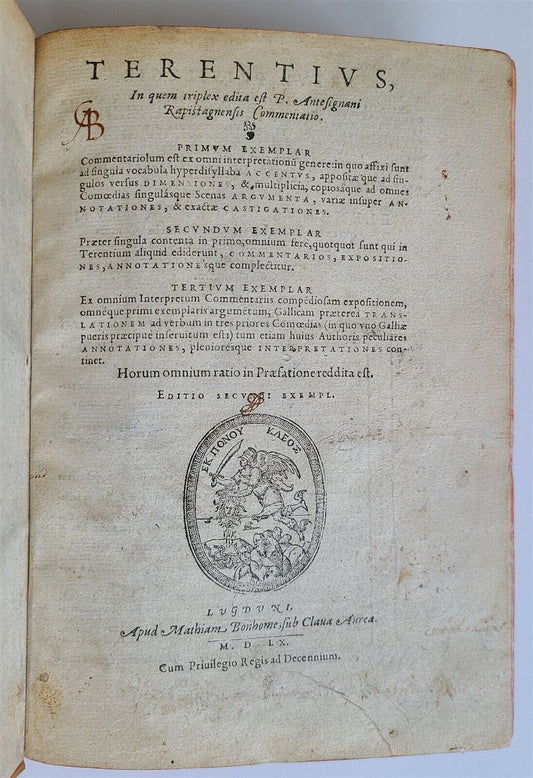 TERENTIVS,
In quem triplex edita est P. Antesignani
Rapistagnensis Commentatio.
PRIMVM EXEMPLAR
Commentariolum est ex omni interpretationũ genere: in quo affixi sunt
ad singula vocabula hyperdisyllaba ACCENTVS, appositæ que ad sin-
gulos versus DIMENSIONES, &, multiplicia, copiosáque ad omnes
Comœdias singulásque Scenas ARGVMENTA, variæ insuper AN-
NOTATIONES, & exactæ CASTIGATIONES.
SECVNDVM EXEMPLAR
Præter singula contenta in primo, omnium fere, quotquot sunt qui in
Terentium aliquid ediderunt, COMMENTARIOS, EXPOSITIO-
NES, ANNOTATIONE'sque complectitur.
TERTIVM EXEMPLAR
Ex omnium Interpretum Commentariis compẽdiosam expositionem,
omnéque primi exemplaris argumẽtum, Gallicam præterea TRANS-
LATIONEM ad verbum in tres priores Comœdias (in quo vno Galliæ
pueris præcipuè inseruitum est) tum etiam huius Authoris peculiares
ANNOTATIONES, pleniorésque INTERPRETATIONES con-
tinet.
Horum omnium ratio in Præfatione reddita est.
EDITIO SECVNDI EXEMPL.
ΕΚ ΠΟΝΟΥ ΚΛΕΟΣ
LVGDVNI,
Apud Mathiam Bonhome, sub Claua Aurea.
M. D. LX.
Cum Priuilegio Regis ad Decennium.